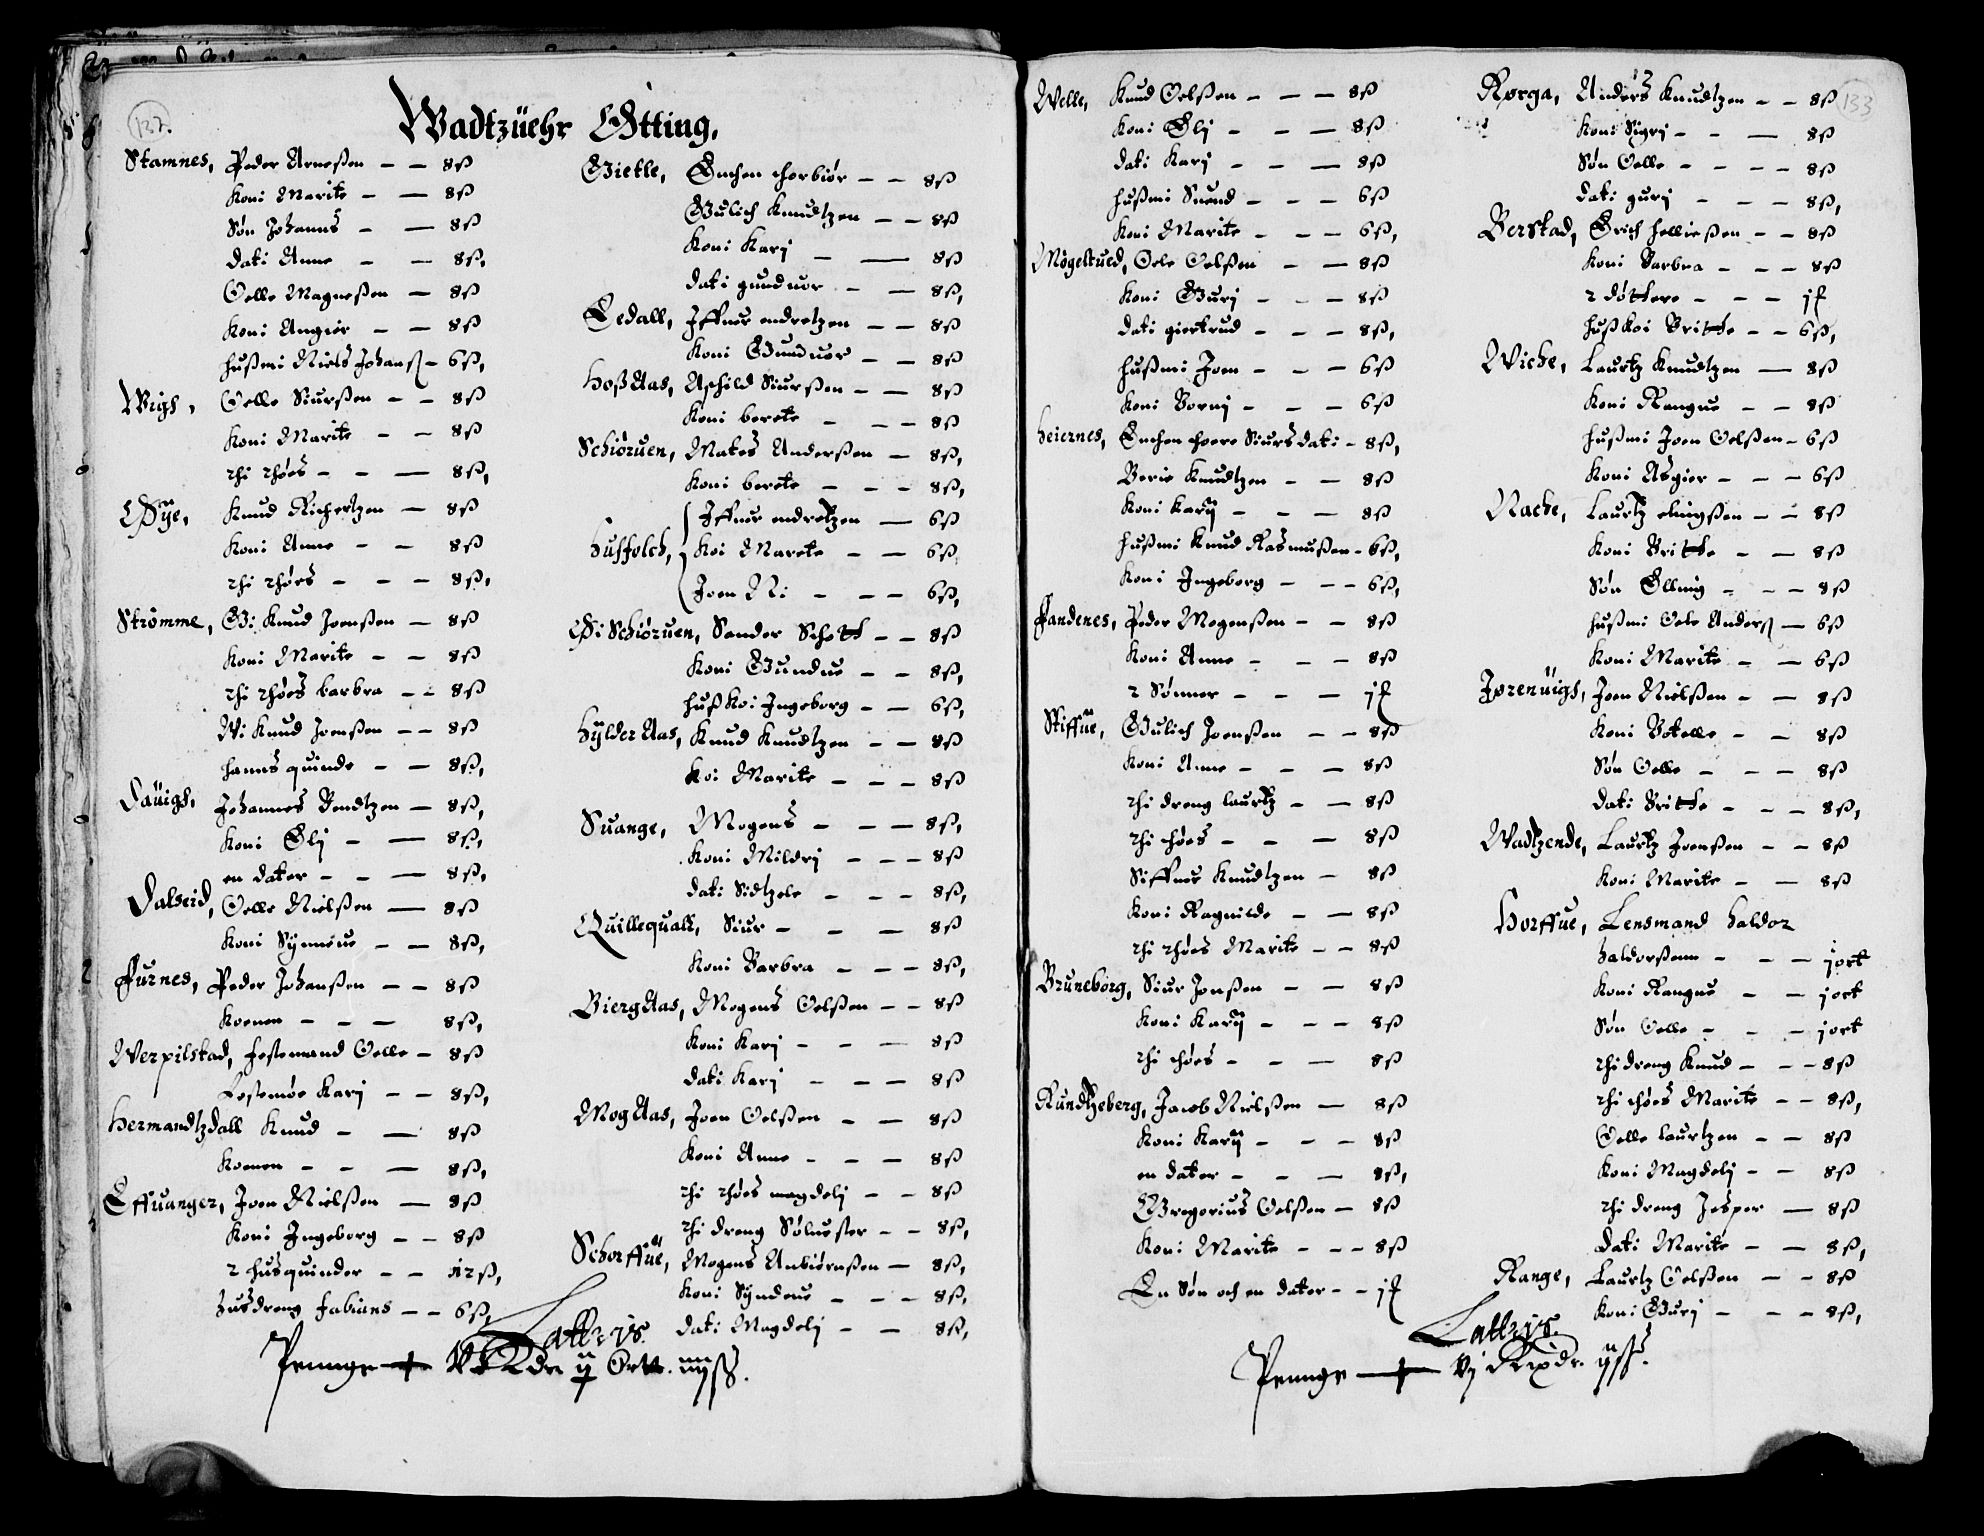 132.
Wadtzüehr Otting,
Stamnes, Peder Arneßen - - 8ß
Koni Marite - - 8ß
Søn Johanns - - 8ß
dati Anne - - 8ß,
Oelle Magneßen - 8ß
Koni Angier - - 8ß
hußmi Niels Johanß - 6ß,
Wigh, Oelle Siurßen - - 8ß
Koni Marite - - 8ß
thi thøes - - - 8ß,
Øye, Knud Richertzen - 8ß
Koni Anne - - 8ß
thi thøes - - - 8ß,
Strømme, Gi Knud Joenßen - 8ß
Koni Marite - - 8ß
thi thøes barbra - - 8ß
Ni Knud Joenßen - - 8ß
hanns quinde - - 8ß,
Dauigh, Johannes Bendtzen - 8ß,
Koni Elj - - 8ß,
en dater - - - 8ß,
Dalseid, Oelle Nielßen - 8ß
Koni Synneue - - 8ß,
Furnes, Peder Johanßen - - 8ß
Konen - - - 8ß,
Werpilstad, festemand Oelle - 8ß
Festemøe Karj - - 8ß,
Hermandtzdall Knud - - 8ß
Konen - - - 8ß,
Effuanger, Joen Nielßen - 8ß
Koni Ingeborg - - 8ß
2 husquinder - - 12ß,
husdreng fabians - - 6ß,
Gietle, Enchen thorbiør - - 8ß
Gulich Knudtzen - - 8ß
Koni Karj - - 8ß
dati gunduor - - 8ß,
Eedall, Iffuer endretzen - - 8ß
Koni Gunduor - - 8ß
HoßAas, Aschild Siurßen - - 8ß
Koni berete - - - 8ß
Schiøruen, Mates Anderßen - 8ß,
Koni berete - - - 8ß,
Husfolch, Iffuer endretzen - 6ß
Koi Marete - - 6ß,
Joen Ni - - - 6ß,
Øi Schiøruen, Sander Schott - - 8ß
Koni Gundue - - 8ß,
hußkoi Ingeborg - - 6ß,
HylderAas, Knud Knudtzen - - 8ß
Koi Marite - - - 8ß
Suange, Mogens - - - 8ß,
Koni Mildrj - - - 8ß
dati Sidtzele - - - 8ß,
Quillequall, Siur - - - 8ß
Koni Barbra - - - 8ß,
BiergAas, Mogens Oelßen - - 8ß
Koni Karj - - - 8ß
dati Karj - - - 8ß
MogAas, Joen Oelßen - - 8ß
Koni Anne - - - 8ß
thi thøes magdelj - - 8ß
thi dreng Søluester - - 8ß,
Schorffue, Mogens Anbiørnßen - 8ß,
Koni Syndeue - - - 8ß,
dati Magdelj - - 8ß,
Penge
133
Welle, Knud Oelßen - - - 8ß
Koni Elj - - - 8ß
dati Karj - - - 8ß
hußmi Suend - - - 6ß
Koni Marite - - - 6ß,
Møgeltued, Oele Oelßen - - 8ß
Koni Gurj - - - 8ß
dati giertrud - - - 8ß,
hußmi Joen - - - 6ß
Koni Bornj - - - 6ß
Heiernes, Enchen thore Siurs dati - 8ß,
Berie Knudtzen - - 8ß
Koni Karij - - - 8ß
hußmi Knud Rasmußen - 6ß,
Koni Ingeborg - - - 6ß,
Fandenes, Peder Mogenßen - - 8ß
Koni Anne - - - 8ß
2 Sønner - - - 1
Stiffue, Gulich Joenßen - - 8ß
Koni Anne - - - 8ß
thi dreng laurtz - - 8ß
thi thøes - - - 8ß
Siffuer Knudtzen - 8ß
Koni Ragnilde - - 8ß
thi thøes Marite - - 8ß
Bruneborg, Siur Jonßen - - 8ß
Koni Karij - - - 8ß
thi thøes - - - 8ß
Rundtzeberg, Jacob Nielßen - 8ß
Koni Karij - - - 8ß
en dater - - - 8ß,
Gregorius Oelßen - 8ß
Koni Marite - - - 8ß
En Søn och en dater - - 1
Rørga, Anders Knudtzen - - 8ß
Koni Sigrj - - - 8ß
Søn Oelle - - - 8ß
dati gurj - - - 8ß,
Berstad, Erich helließen - - 8ß
Koni Barbra - - - 8ß
2 døttere - - - 1
hußkoi Britthe - - 6ß,
Wiche, Laurtz Knudtzen - 8ß
Koni Rangue - - 8ß
hußmi Joen Oelßen - 6ß
Koni Asgier - - - 6ß
Nache, Laurtz elingßen - - 8ß
Koni Britthe - - 8ß
Søn Elling - - - 8ß
hußmi Oele Anderß - 6ß
Koni Marite - - 6ß
Jørenuigh, Joen Nielßen - - 8ß
Koni Botelle - - 8ß
Søn Oelle - - - 8ß
dati Britthe - - - 8ß,
Wadtzende, Laurtz Joenßen - - 8ß
Koni Marite - - 8ß
Horffue, Lensmand Haldor
haldorßenn - - - jort
Koni Rangue - - jort
Søn Oelle - - - jort
thi dreng Knud - - - 8ß
thi thøes Marite - - 8ß,
Oelle laurtzen - - 8ß
Koni Magdelj - - 8ß
thi dreng Jesper - 8ß
Dati Marite - - 8ß,
Range, Laurtz Oelßen - - 8ß
Koni Gurj - - - 8ß,
Penge